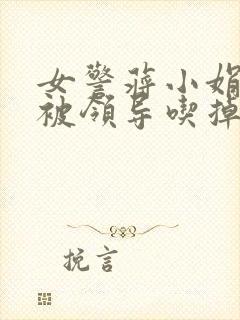 女警蒋小娟
被领导喫掉
挽言